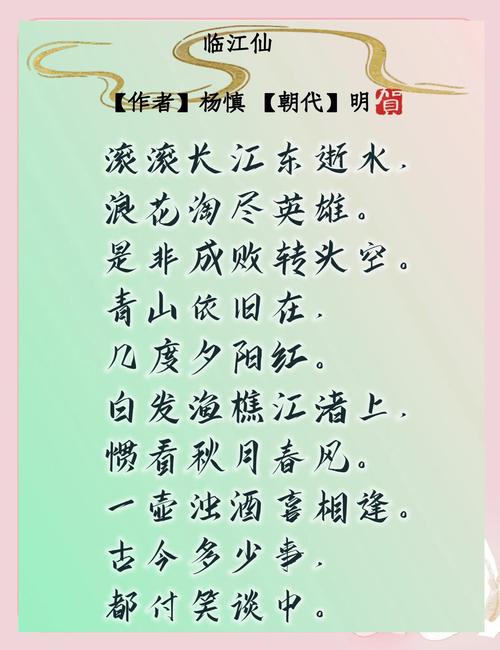 临江仙
【作者】杨慎【朝代】明
賀
滚滚长江东逝水，
浪花淘尽英雄。
是非成败转头空。
青山依旧在，
几度夕阳红。
白发渔樵江渚上，
惯看秋月春风。
一壶浊酒喜相逢。
古今多少事，
都付笑谈中。